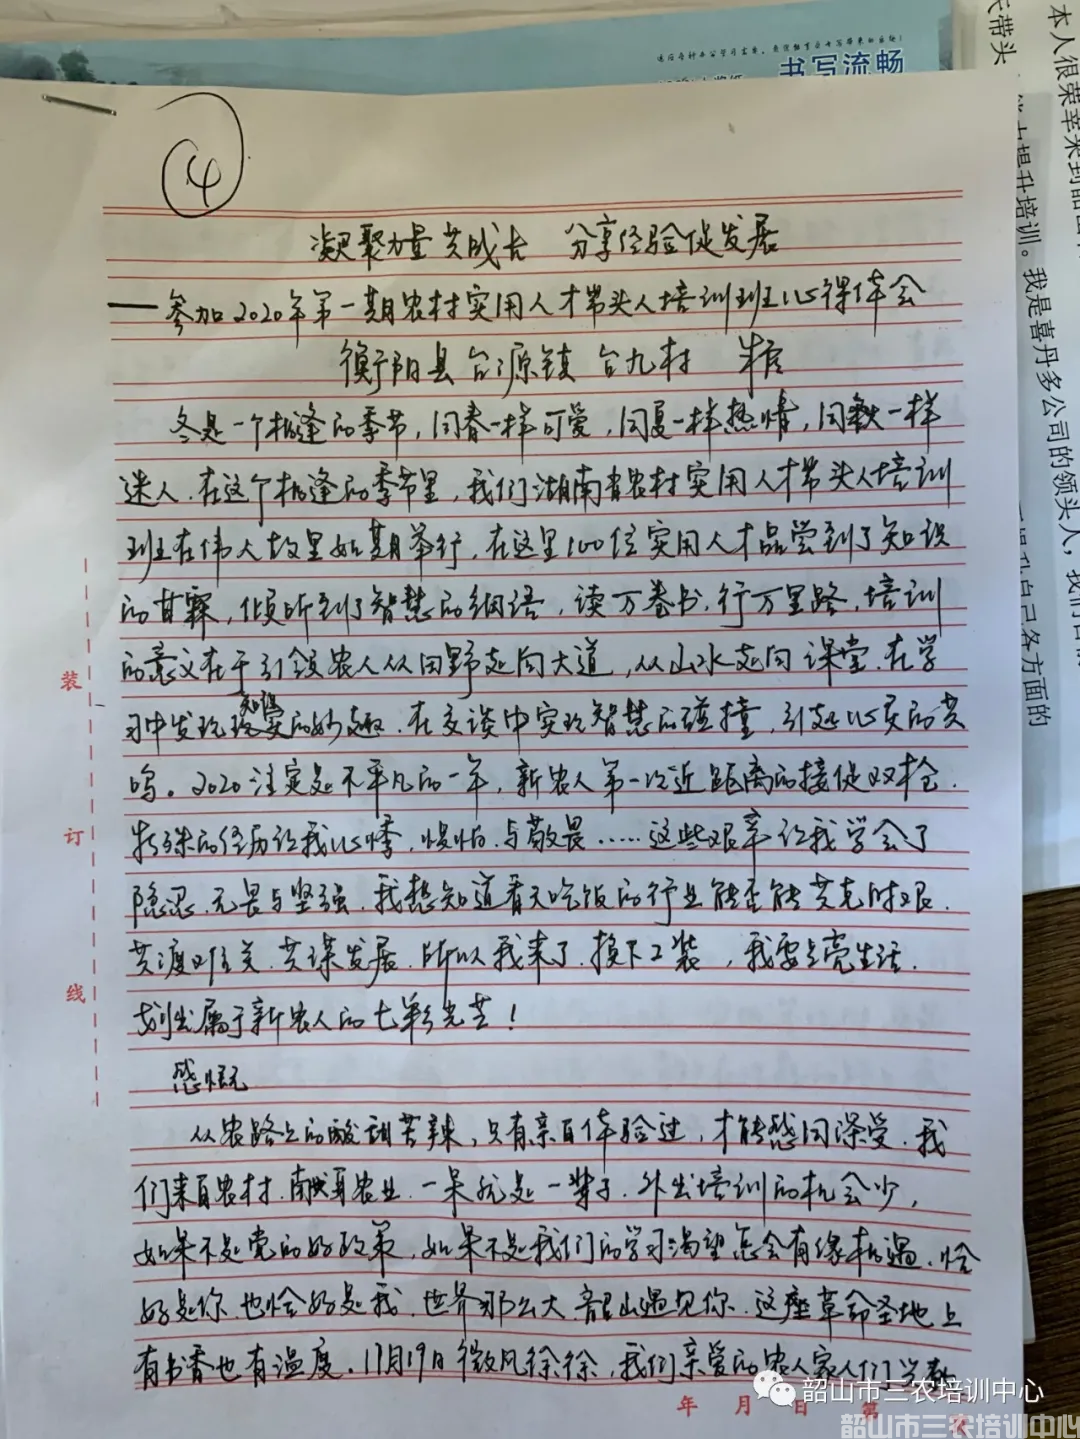 书写流畅
本人很荣幸来到韶山
氏带头
能力提升培训。我是喜丹多公司的领头人，我们
提升自己各方面的
④
凝聚力量共成长 分享经验促发展
——参加2020年第一期农村实用人才带头人培训班心得体会
衡阳县台源镇台九村
冬是一个相逢的季节，同春一样可爱，同夏一样热情，同秋一样
迷人．在这个相逢的季节里，我们湖南省农村实用人才带头人培训
班在伟人故里如期举行，在这里100位实用人才品尝到了知识
的甘霖，倾听到了智慧的细语，读万卷书．行万里路．培训
的意义在于引领农人从田野走向大道，从山水走向课堂．在学
习中发现知识的妙趣．在交谈中实现智慧的碰撞，引起心灵的共
鸣。2020注定是不平凡的一年，新农人第一次近距离的接促双抢．
特殊的经历让我心悸，惧怕．与敬畏……这些艰辛让我学会了
隐忍．无畏与坚强．我想知道看天吃饭的行业能否能共克时艰．
共渡难关．共谋发展．所以我来了．换下工装，我要点亮生活．
划出属于新农人的七彩光芒！
感慨
从农路上的酸甜苦辣，只有亲自体验过，才能感同深受．我
们来自农村．献身农业．一呆就是一辈子．外出培训的机会少，
如果不是党的好政策，如果不是我们的学习渴望怎会有缘相遇．恰
好是你．也恰好是我．世界那么大．韶山遇见你．这座革命圣地上
有书香也有温度．11月19日微风徐徐，我们亲爱的农人家人们
装
订
线
年 月 日 第
韶山市三农培训中心
韶山市三农培训中心